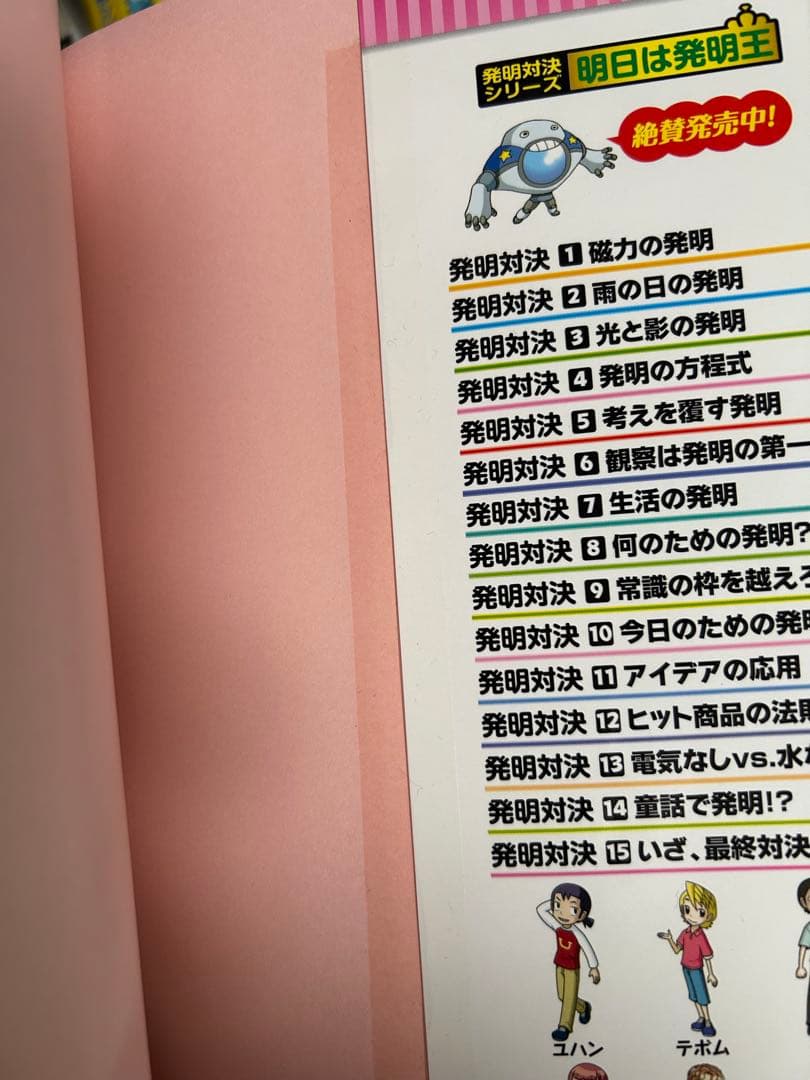 発明対決
シリーズ
明日は発明王
絶賛発売中!
発明対決 1 磁力の発明
発明対決 2 雨の日の発明
発明対決 3 光と影の発明
発明対決 4 発明の方程式
発明対決 5 考えを覆す発明
発明対決 6 観察は発明の第一
発明対決 7 生活の発明
発明対決 8 何のための発明?
発明対決 9 常識の枠を越えろ
発明対決 10 今日のための発明
発明対決 11 アイデアの応用
発明対決 12 ヒット商品の法則
発明対決 13 電気なしvs.水な
発明対決 14 童話で発明!?
発明対決 15 いざ、最終対決
ユハン
テボム